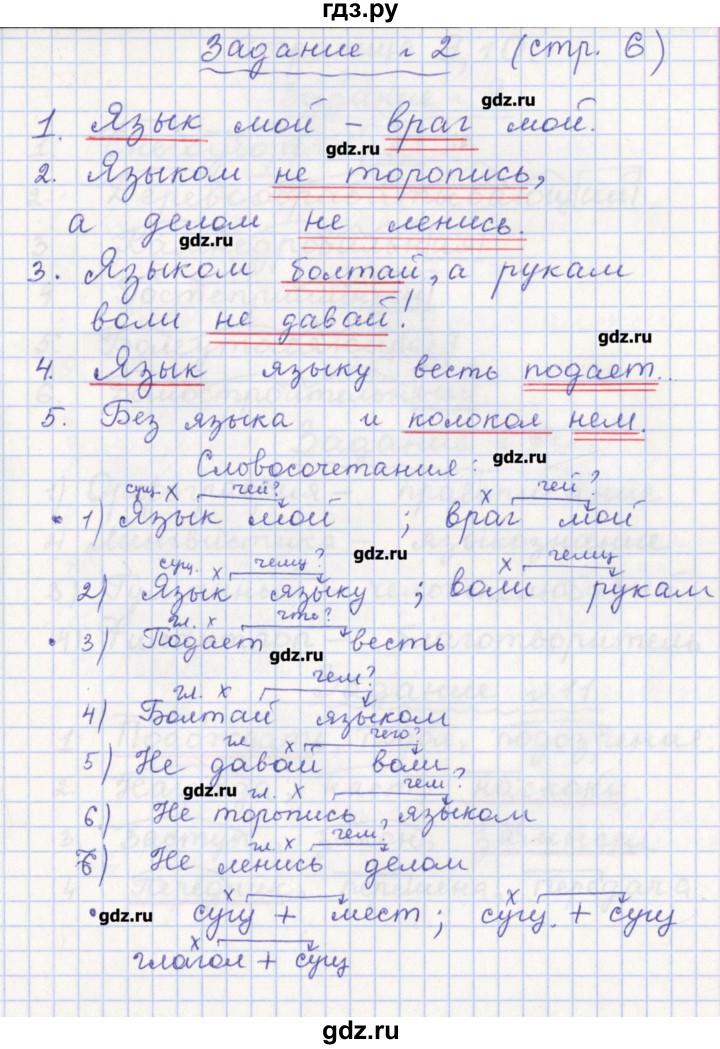 гдз.ру
Задание г 2 (стр. 6)
gdz.ru
1. Язык мой – враг мой.
gdz.ru
2. Языком не торопись,
а делом не ленись.
gdz.ru
3. Языком болтай, а рукам
воли не давай!
gdz.ru
4. Язык языку весть подает.
5. Без языка и колокол нем.
gdz.ru
Словосочетания:
сущ. х чей? х чей?
1) Язык мой ; враг мой
gdz.ru
сущ. х чему? х чему
2) Язык языку ; воли рукам
гл. х что?
3) Подает весть
gdz.ru
гл. х чем?
4) Болтай языком
гл х чего?
5) Не давай воли
gdz.ru гл. х чем?
6) Не торопись языком
гл. х чем?
7) Не ленись делом
gdz.ru
х х
сущ + мест ; сущ. + сущ
х
глагол + сущ
gdz.ru